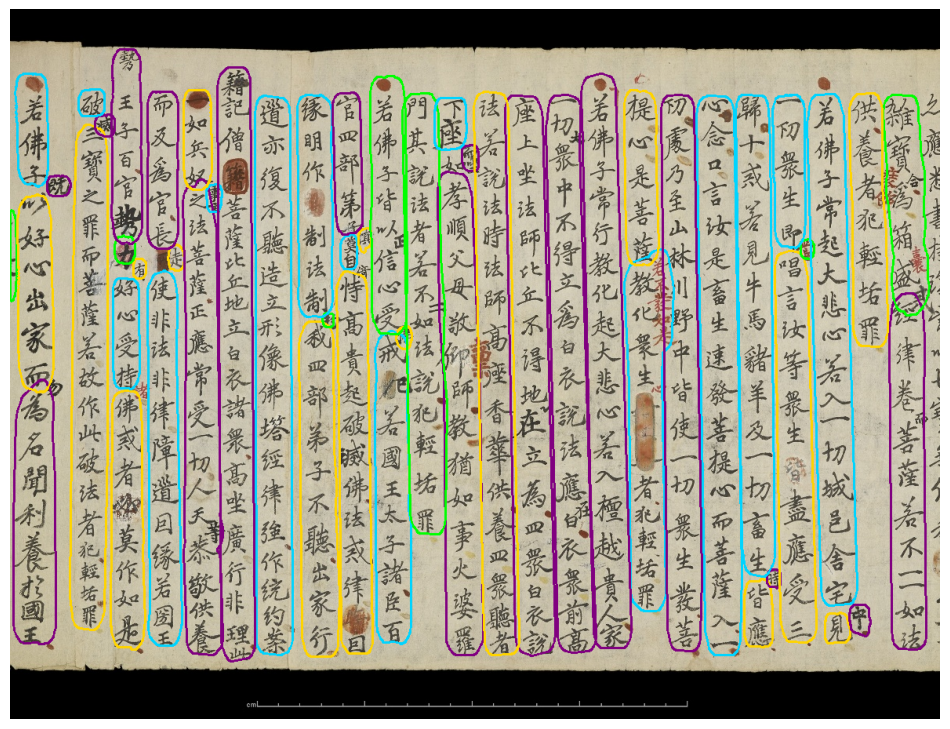 雜寶為箱盛經律卷菩薩若不二一如法
供養者犯輕垢罪
若佛子常起大悲心若入一切城邑舍宅見
一切眾生即唱言汝等眾生盡應受三
歸十戒若見牛馬豬羊及一切畜生皆應
心念口言汝是畜生速發菩提心而菩薩入一
切處乃至山林川野中皆使一切眾生發菩
提心是菩薩教化眾生者犯輕垢罪
若佛子常行教化起大悲心若入檀越貴人家
一切眾中不得立為白衣說法應在白衣眾前高
座上坐法師比丘不得地在立為四眾白衣說
法若說法時法師高座香華供養四眾聽者
下座如孝順父母敬仰師教猶如事火婆羅
門其說法者若不如法說犯輕垢罪
若佛子皆以信心受戒犯若國王太子諸臣百
官四部第子莫自恃高貴起破滅佛法戒律囙
緣明作制法制我四部弟子不聽出家行
道亦復不聽造立形像佛塔經律強作統約案
籍記僧籍菩薩比丘地立白衣諸眾高坐廣行非理此
如兵奴之法菩薩正應常受一切人天等恭敬供養
而及為官長使非法非律障道囙緣若國王
王子百官勢力好心受持佛戒者莫作如是
破三寶之罪而菩薩若故作此破法者犯輕垢罪
若佛子以好心出家而為名聞利養於國王